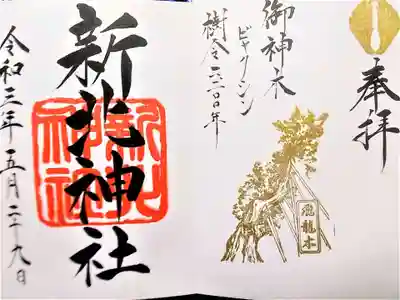 奉拝
御神木
ビャクシン
樹令一六〇〇年
飛龍木
新北神社
令和三年五月二十九日